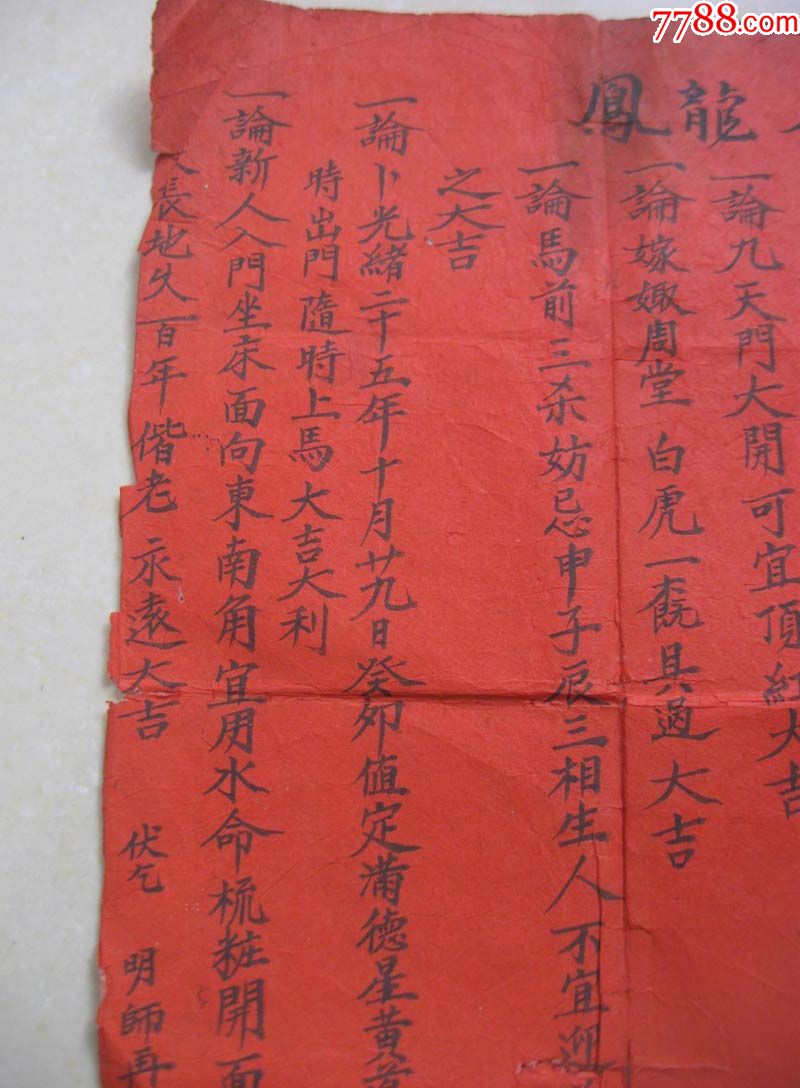 7788.com
鳳龍
一論九天門大開可宜頂紅大吉
一論嫁娵周堂白虎一㡃具過大吉
一論馬前三杀妨忌申子辰三相生人不宜迎
之大吉
一論卜光緒二十五年十月廿九日癸卯值定滿德星黃
時出門隨時上馬大吉大利
一論新人入門坐床面向東南角宜用水命梳粧開面
長地久百年偕老永遠大吉 伏乞 明師再